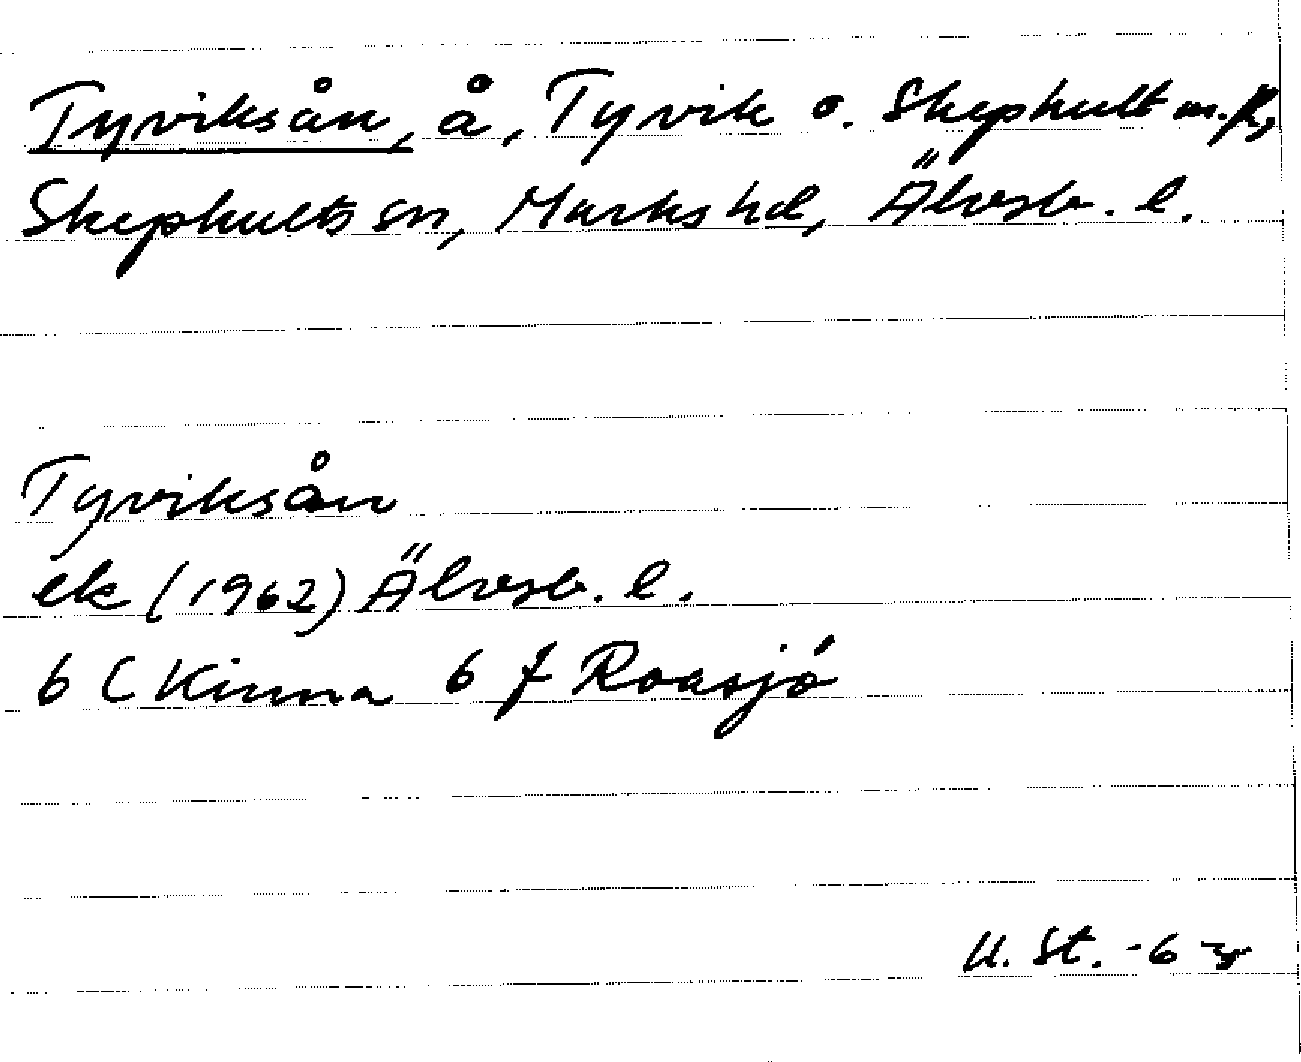 Tyviksån, å, Tyvik o. Skephult m.fl,
Skephults sn, Marks hd, Älvsb. l.
Tyviksån
ek (1962) Älvsb. l.
6 C Kinna 6 f Roasjö
U. St. -63